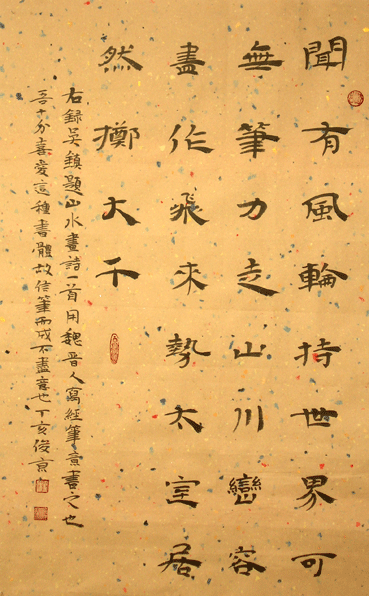 聞有風輪持世界可
無筆力走山川巒容
盡作飛來勢太室居
然擲大千
右錄吳鎮題山水畫詩一首用魏晉人寫經筆意書之也
吾十分喜愛這種書體故信筆而成不盡意也丁亥俊京